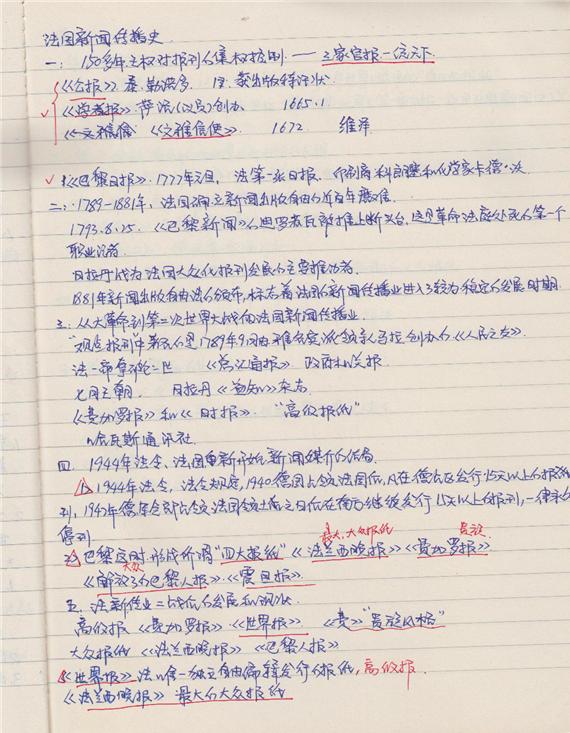 法国新闻传播史
一: 150多年王权对报刊的集权控制 —— 三家官报一统天下
《公报》 泰.勒诺多. 获出版特许状
《学者报》 萨洛(议员)创办 1665.1
《文雅信使》 1672 维泽
《巴黎日报》.1777年元旦, 法第一家日报.
二: 1789-1881年, 法国确立新闻出版自由的近百年磨难
1793.8.25. 《巴黎新闻》的 被推上断头台, 这是革命法庭处死的第一个
职业记者.
日拉丹成为法国大众化报刊发展的主要推动者.
1881年新闻出版自由法的颁布, 标志着法国的新闻传播业进入了较为稳定的发展时期
三: 从大革命到第二次世界大战的法国新闻传播业.
"观点报刊"中著名的是1789年9月由雅各宾派领袖马拉创办的《人民之友》
法一帝拿破仑一世 《总汇通报》 政府机关报
七月王朝. 日拉丹 《益知》杂志
《费加罗报》和《时报》. "高级报纸"
哈瓦斯通讯社
四. 1944年法令、法国重新开始新闻媒介的结局
1. 1944年法令, 法令规定, 1940德国占领法国后, 凡在德占区发行15天以上的报纸
刊, 1942年德军全部占领法国领土之日后在南方继续发行15天以上的报刊, 一律永久
停刊
最大、大众报纸
2. 巴黎定时形成所谓"四大报纸"《法兰西晚报》《费加罗报》
大众
《解放了的巴黎人报》.《震旦报》.
五. 法新传业二战后的发展和现状
高级报 《费加罗报》《世界报》 《费》"贵族风格"
大众报纸 《法兰西晚报》 《巴黎人报》
《世界报》法唯一独立自由编辑发行的报纸, 高级报.
《法兰西晚报》 最大的大众报纸